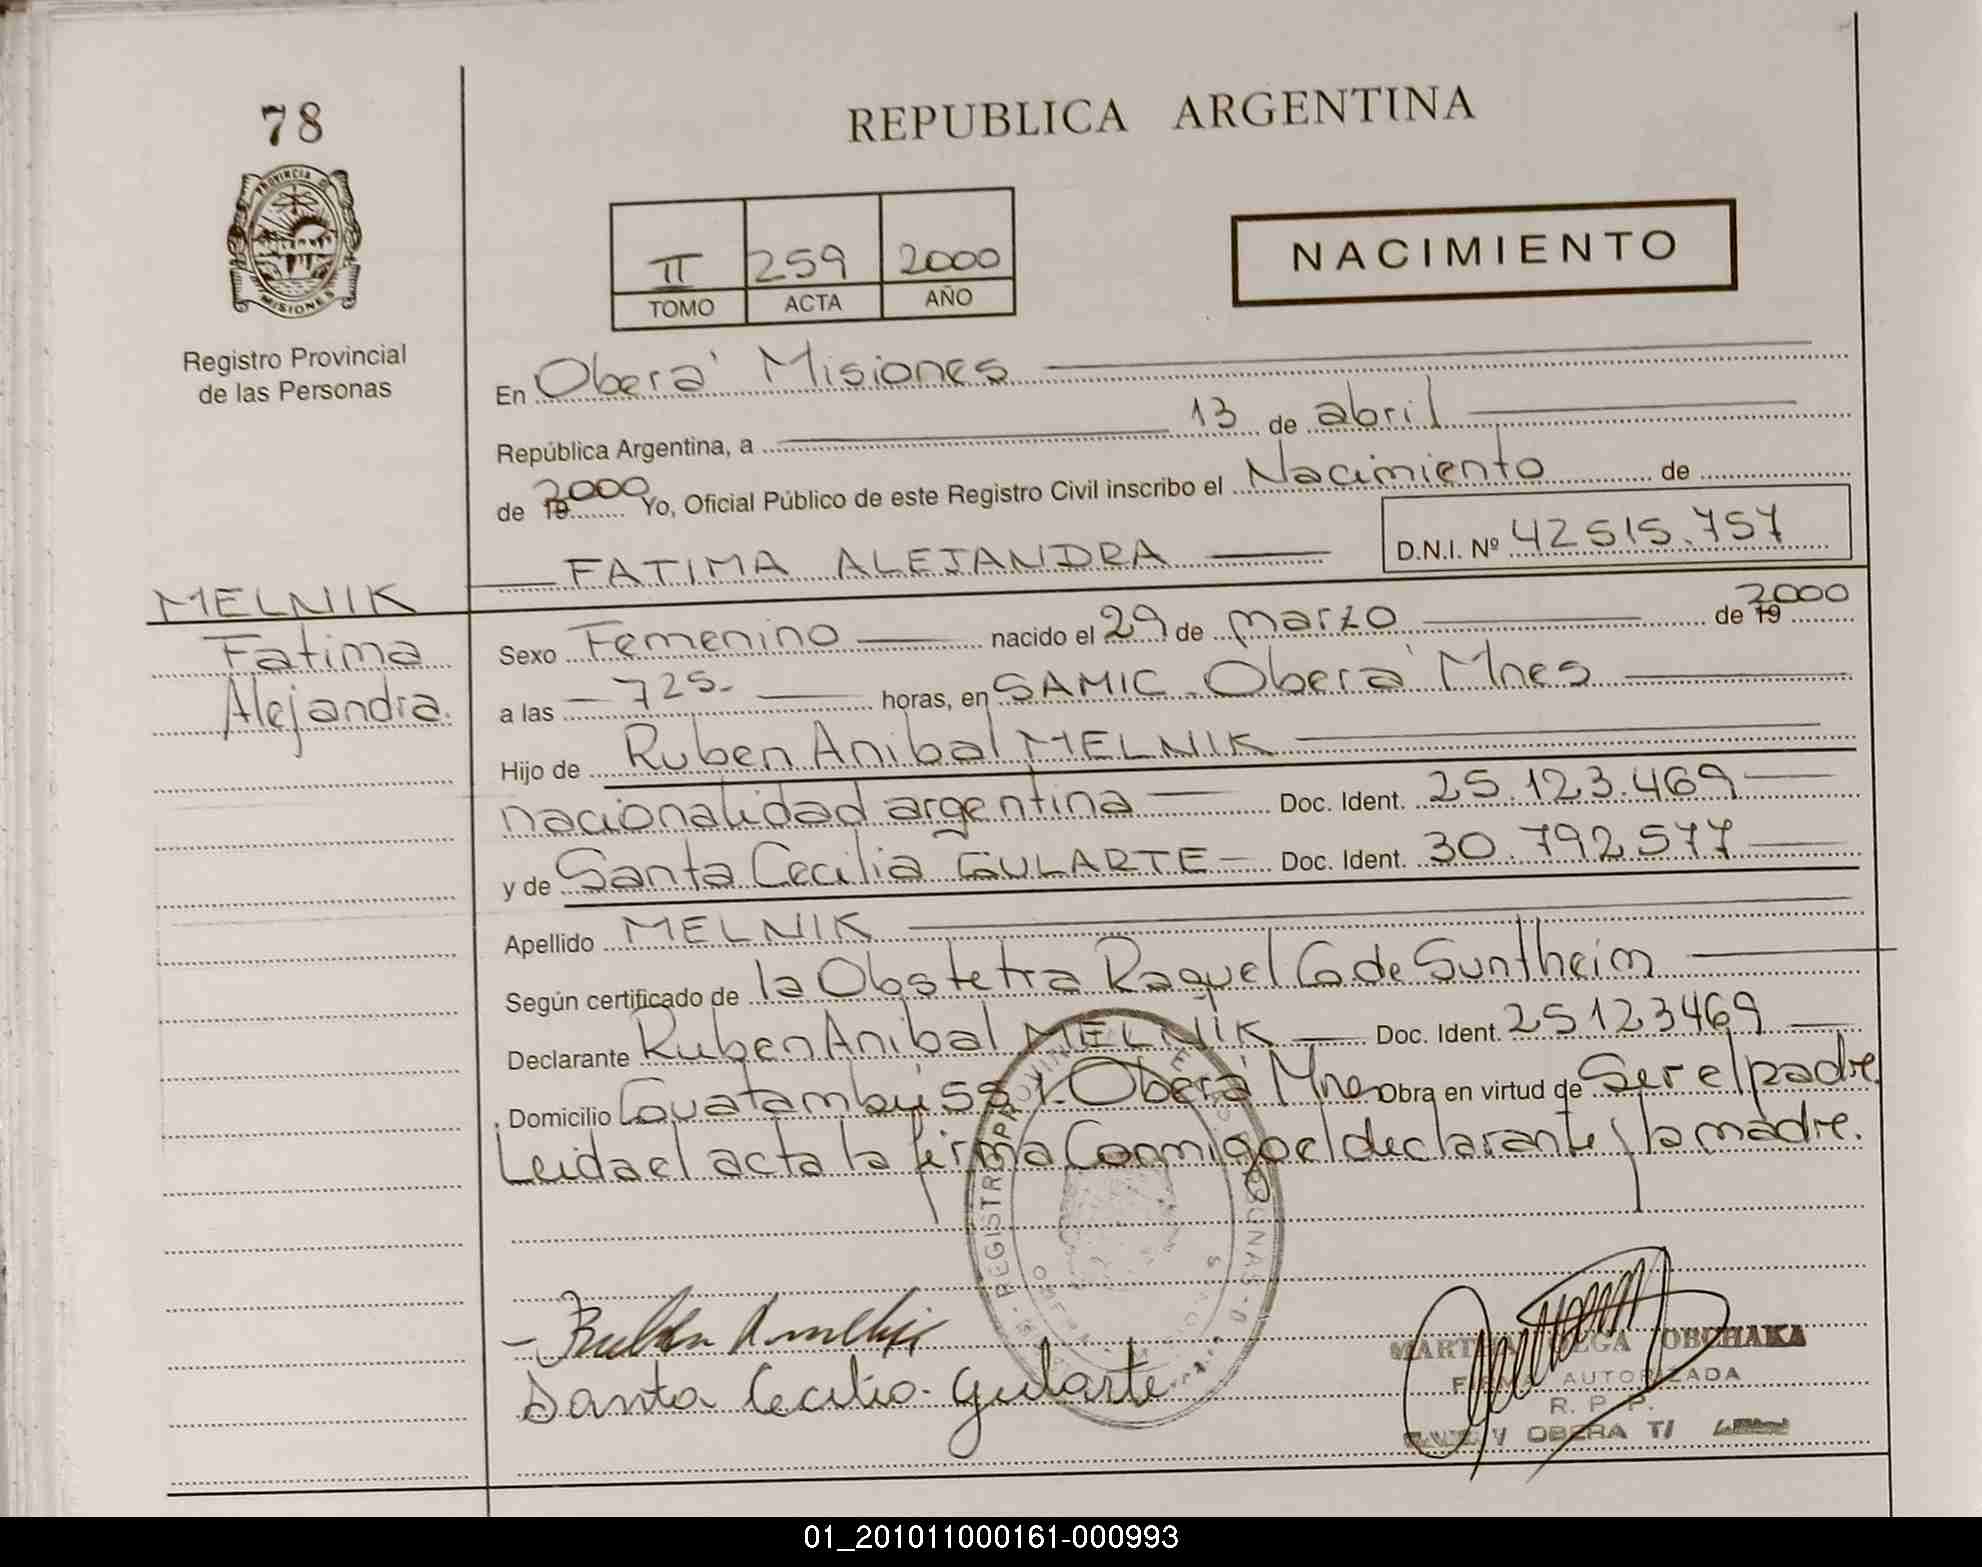 78
REPUBLICA ARGENTINA
PROVINCIA DE
MISIONES
Registro Provincial
de las Personas
II 259 2000
TOMO ACTA AÑO
NACIMIENTO
En Oberá Misiones
República Argentina, a 13 de abril
de 19 2000 Yo, Oficial Público de este Registro Civil inscribo el Nacimiento de
FATIMA ALEJANDRA D.N.I. Nº 42515.757
MELNIK
Fatima
Alejandra.
Sexo Femenino nacido el 29 de marzo de 19 2000
a las - 725- horas, en SAMIC - Oberá Mnes
Hijo de Ruben Anibal MELNIK
nacionalidad argentina Doc. Ident. 25.123.469
y de Santa Cecilia GULARTE - Doc. Ident. 30.792.577
Apellido MELNIK
Según certificado de la Obstetra Raquel G de Suntheim
Declarante Ruben Anibal MELNIK Doc. Ident. 25123469
Domicilio Guatambú 58 Oberá Mnes Obra en virtud de Ser el padre.
Leida el acta la firma Conmigo el declarante y la madre.
Santa Cecilia Gularte
OBCHAKA
AUTORIZADA
R. P. P.
OBERA
01_201011000161-000993